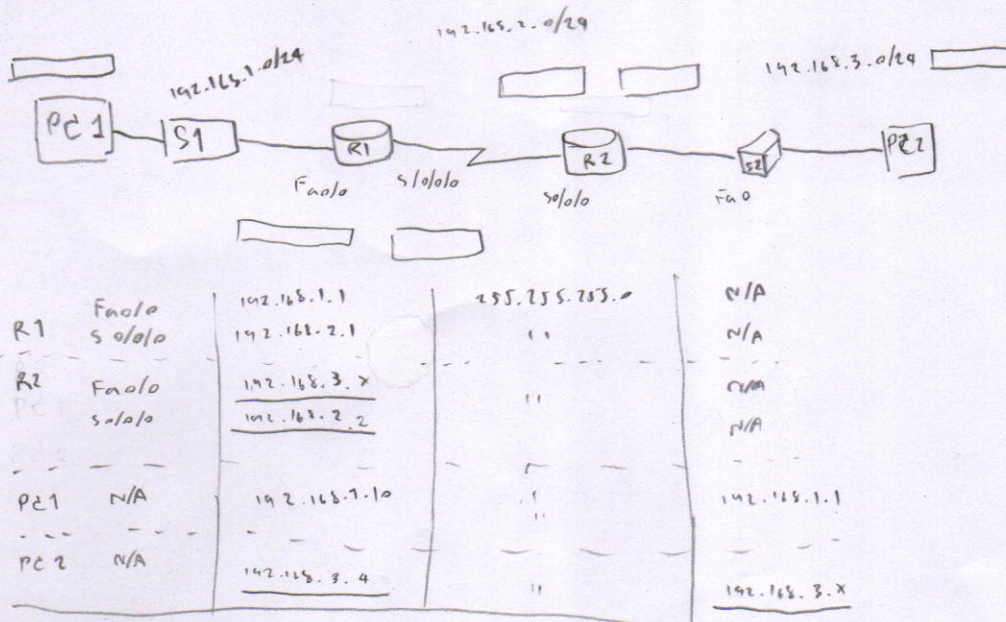 192.168.2.0/24
192.168.1.0/24
192.168.3.0/24
PC1
S1
R1
R2
S2
PC2
Fa0/0
S/0/0/0
S0/0/0
Fa0
R1 Fa0/0 192.168.1.1 255.255.255.0 N/A
S0/0/0 192.168.2.1 " N/A
R2 Fa0/0 192.168.3.x " N/A
S0/0/0 192.168.2.2 N/A
PC1 N/A 192.168.1.10 " 192.168.1.1
PC2 N/A 192.168.3.4 " 192.168.3.x